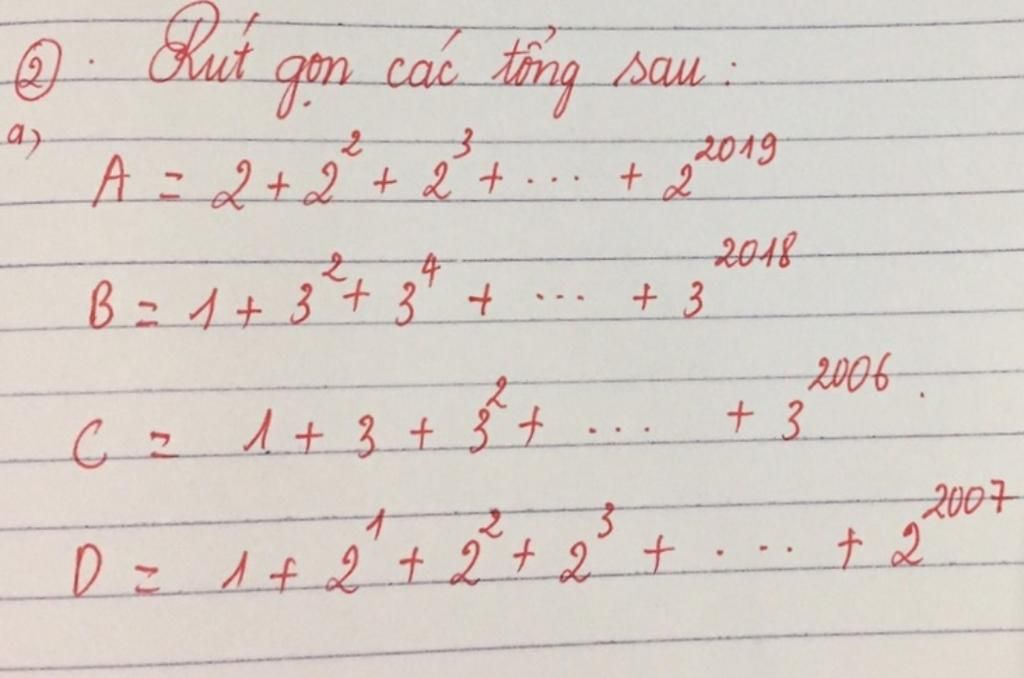 ② . Rút gọn các tổng sau :
a)
A = 2 + 2² + 2³ + ... + 2²⁰¹⁹
B = 1 + 3² + 3⁴ + ... + 3²⁰¹⁸
C = 1 + 3 + 3² + ... + 3²⁰⁰⁶ .
D = 1 + 2¹ + 2² + 2³ + ... + 2²⁰⁰⁷